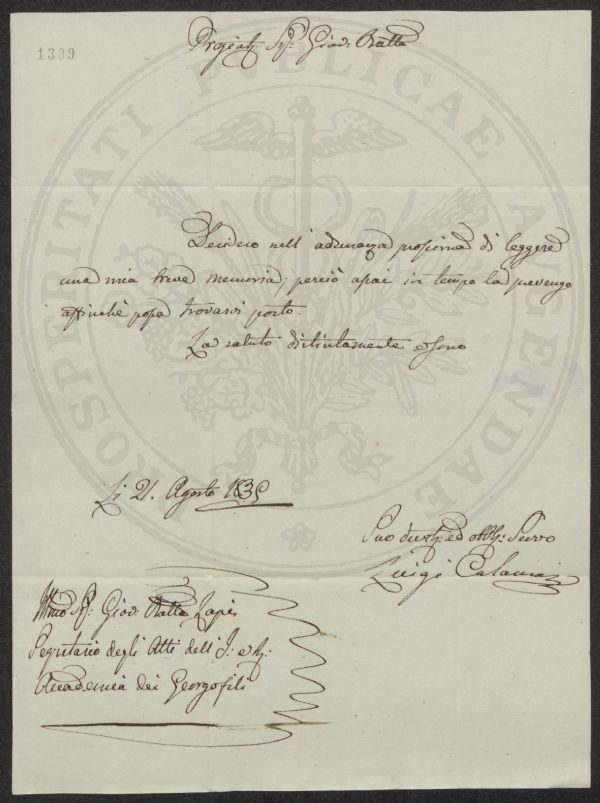 1309
Sig: Giov: Batta
PROSPERITATI PUBLICAE AUGENDAE
Desidero nell'adunanza prossima di leggere
una mia breve memoria, perciò assai in tempo la prevengo
affinchè possa trovarvi posto.
La saluto distintamente e sono
Li 21. Agosto 1835
Suo ed obbl: Servo
Luigi Calamai
Illmo Sig: Giov: Batta Lapi
Segretario degli Atti dell'I: e R:
Accademia dei Georgofili